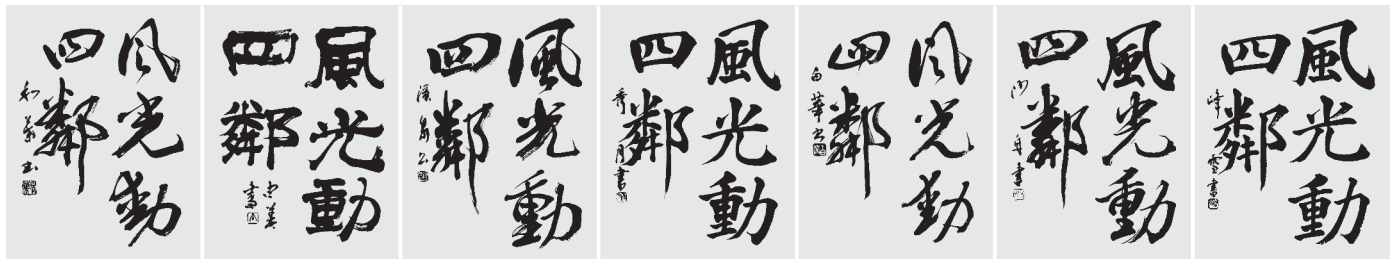 風光動
四鄰
風光動
四鄰
書
風光動
四鄰
風光動
四鄰
秀月書
風光動
四鄰
白華書
風光動
四鄰
舟書
風光動
四鄰
峰雪書